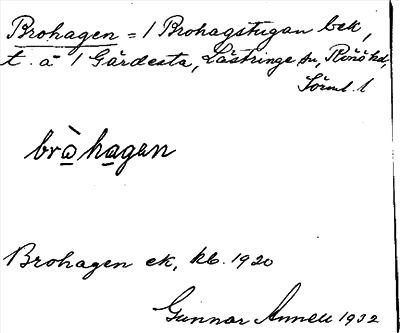 Brohagen = 1 Brohagstugan bek,
t. å 1 Gärdesta, Lästringe sn, Rönö hd,
Sörml. l
brò̱ha̱gen
Brohagen ek, kb. 1920
Gunnar Annell 1932